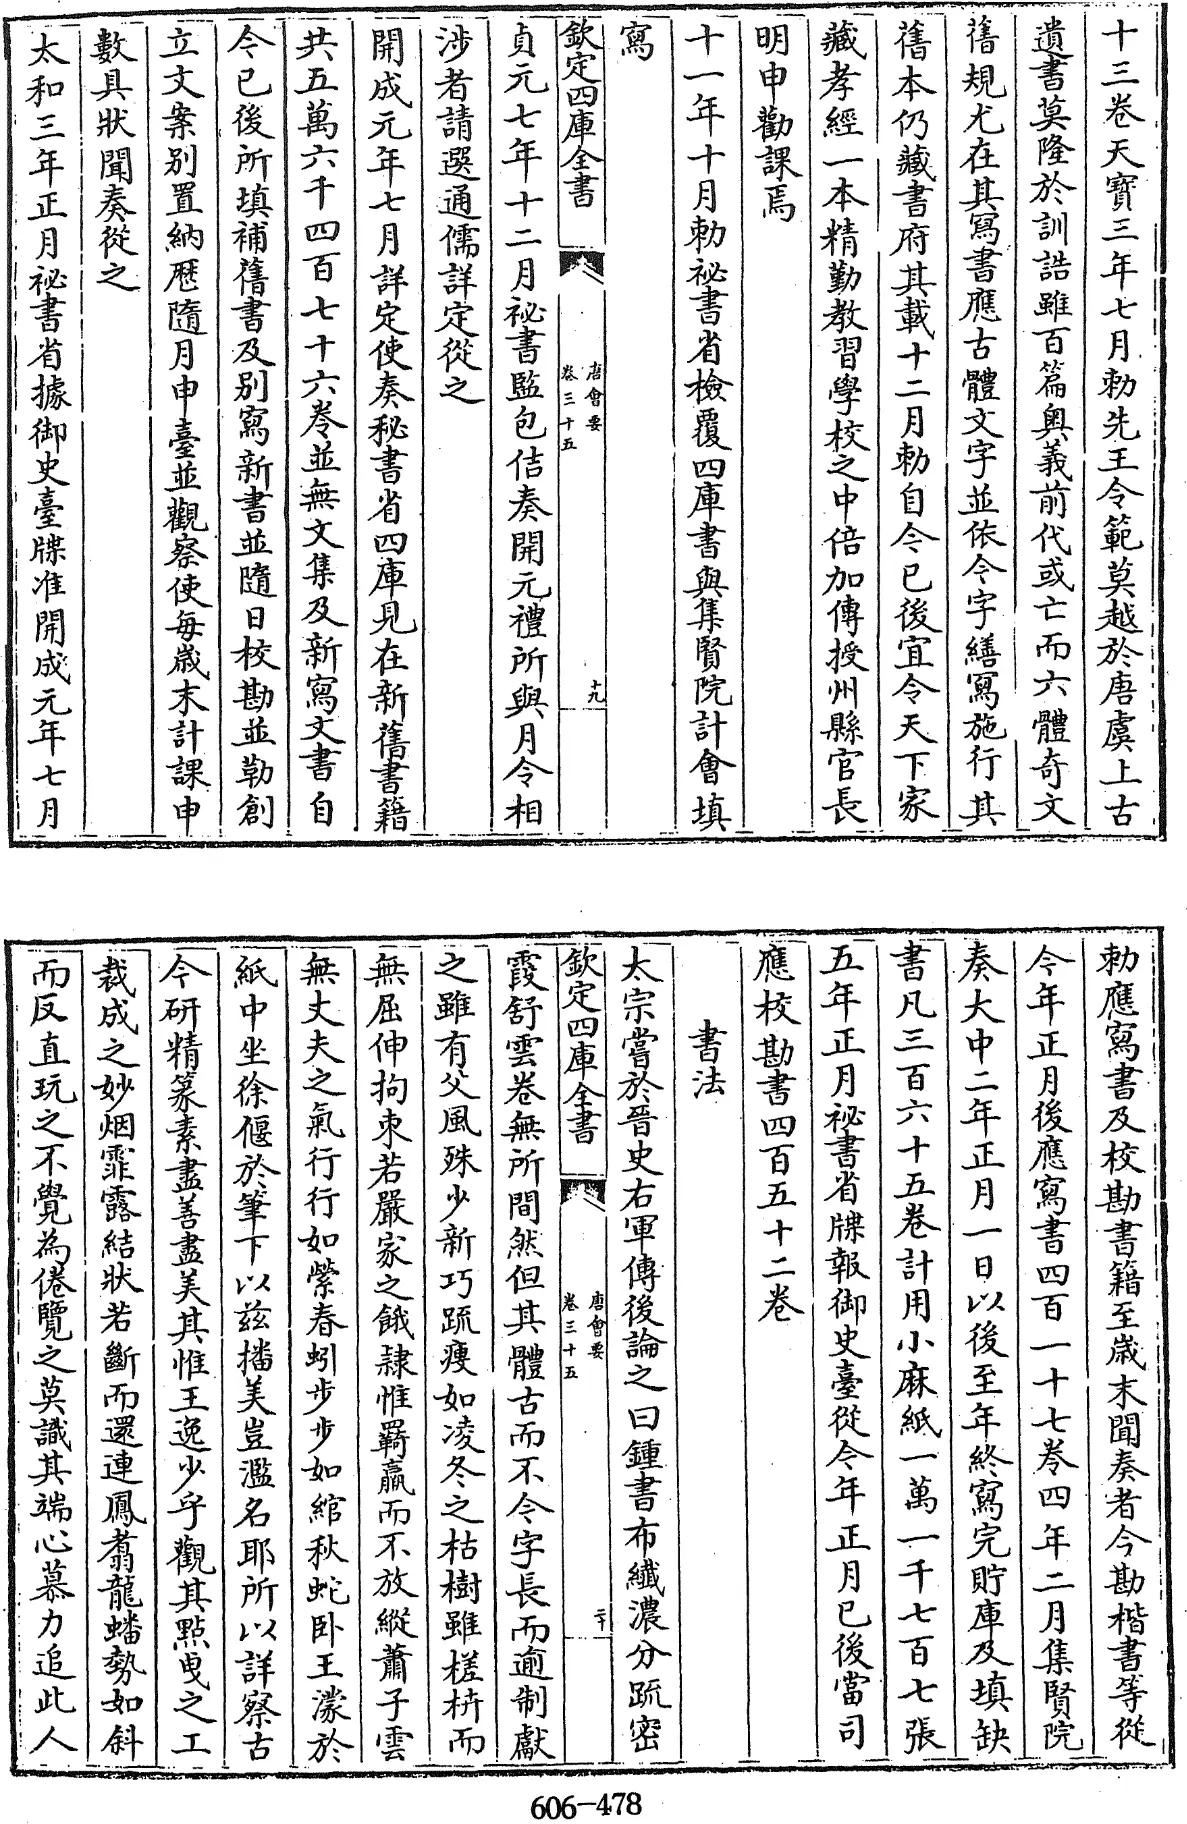 十三卷天寶三年七月勅先王令範莫越於唐虞上古
遺書莫隆於訓誥雖百篇奥義前代或亡而六體奇文
舊規尤在其寫書應古體文字並依今字繕寫施行其
舊本仍藏書府其載十二月勅自今已後宜令天下家
藏孝經一本精勤教習學校之中倍加傳授州縣官長
明申勸課焉
十一年十月勅祕書省檢覆四庫書與集賢院計會填
寫
欽定四庫全書
唐會要
卷三十五
十九
貞元七年十二月祕書監包佶奏開元禮所與月令相
涉者請選通儒詳定從之
開成元年七月詳定使奏秘書省四庫見在新舊書籍
共五萬六千四百七十六卷並無文集及新寫文書自
今已後所填補舊書及别寫新書並隨日校勘並勒創
立文案别置納厯隨月申臺並觀察使每歲末計課申
數具狀聞奏從之
太和三年正月祕書省據御史臺牒准開成元年七月
勅應寫書及校勘書籍至歲末聞奏者今勘楷書等從
今年正月後應寫書四百一十七卷四年二月集賢院
奏大中二年正月一日以後至年終寫完貯庫及填缺
書凡三百六十五卷計用小麻紙一萬一千七百七張
五年正月祕書省牒報御史臺從今年正月已後當司
應校勘書四百五十二卷
書法
太宗嘗於晉史右軍傳後論之曰鍾書布纖濃分疏密
欽定四庫全書
唐會要
卷三十五
二十
霞舒雲卷無所間然但其體古而不今字長而逾制獻
之雖有父風殊少新巧疏瘦如凌冬之枯樹雖槎枿而
無屈伸拘束若嚴家之餓隸惟羇羸而不放縱蕭子雲
無丈夫之氣行行如縈春蚓步步如綰秋蛇卧王濛於
紙中坐徐偃於筆下以兹播美豈濫名耶所以詳察古
今研精篆素盡善盡美其惟王逸少乎觀其點曳之工
裁成之妙烟霏露結狀若斷而還連鳳翥龍蟠勢如斜
而反直玩之不覺為倦覽之莫識其端心慕力追此人
606-478